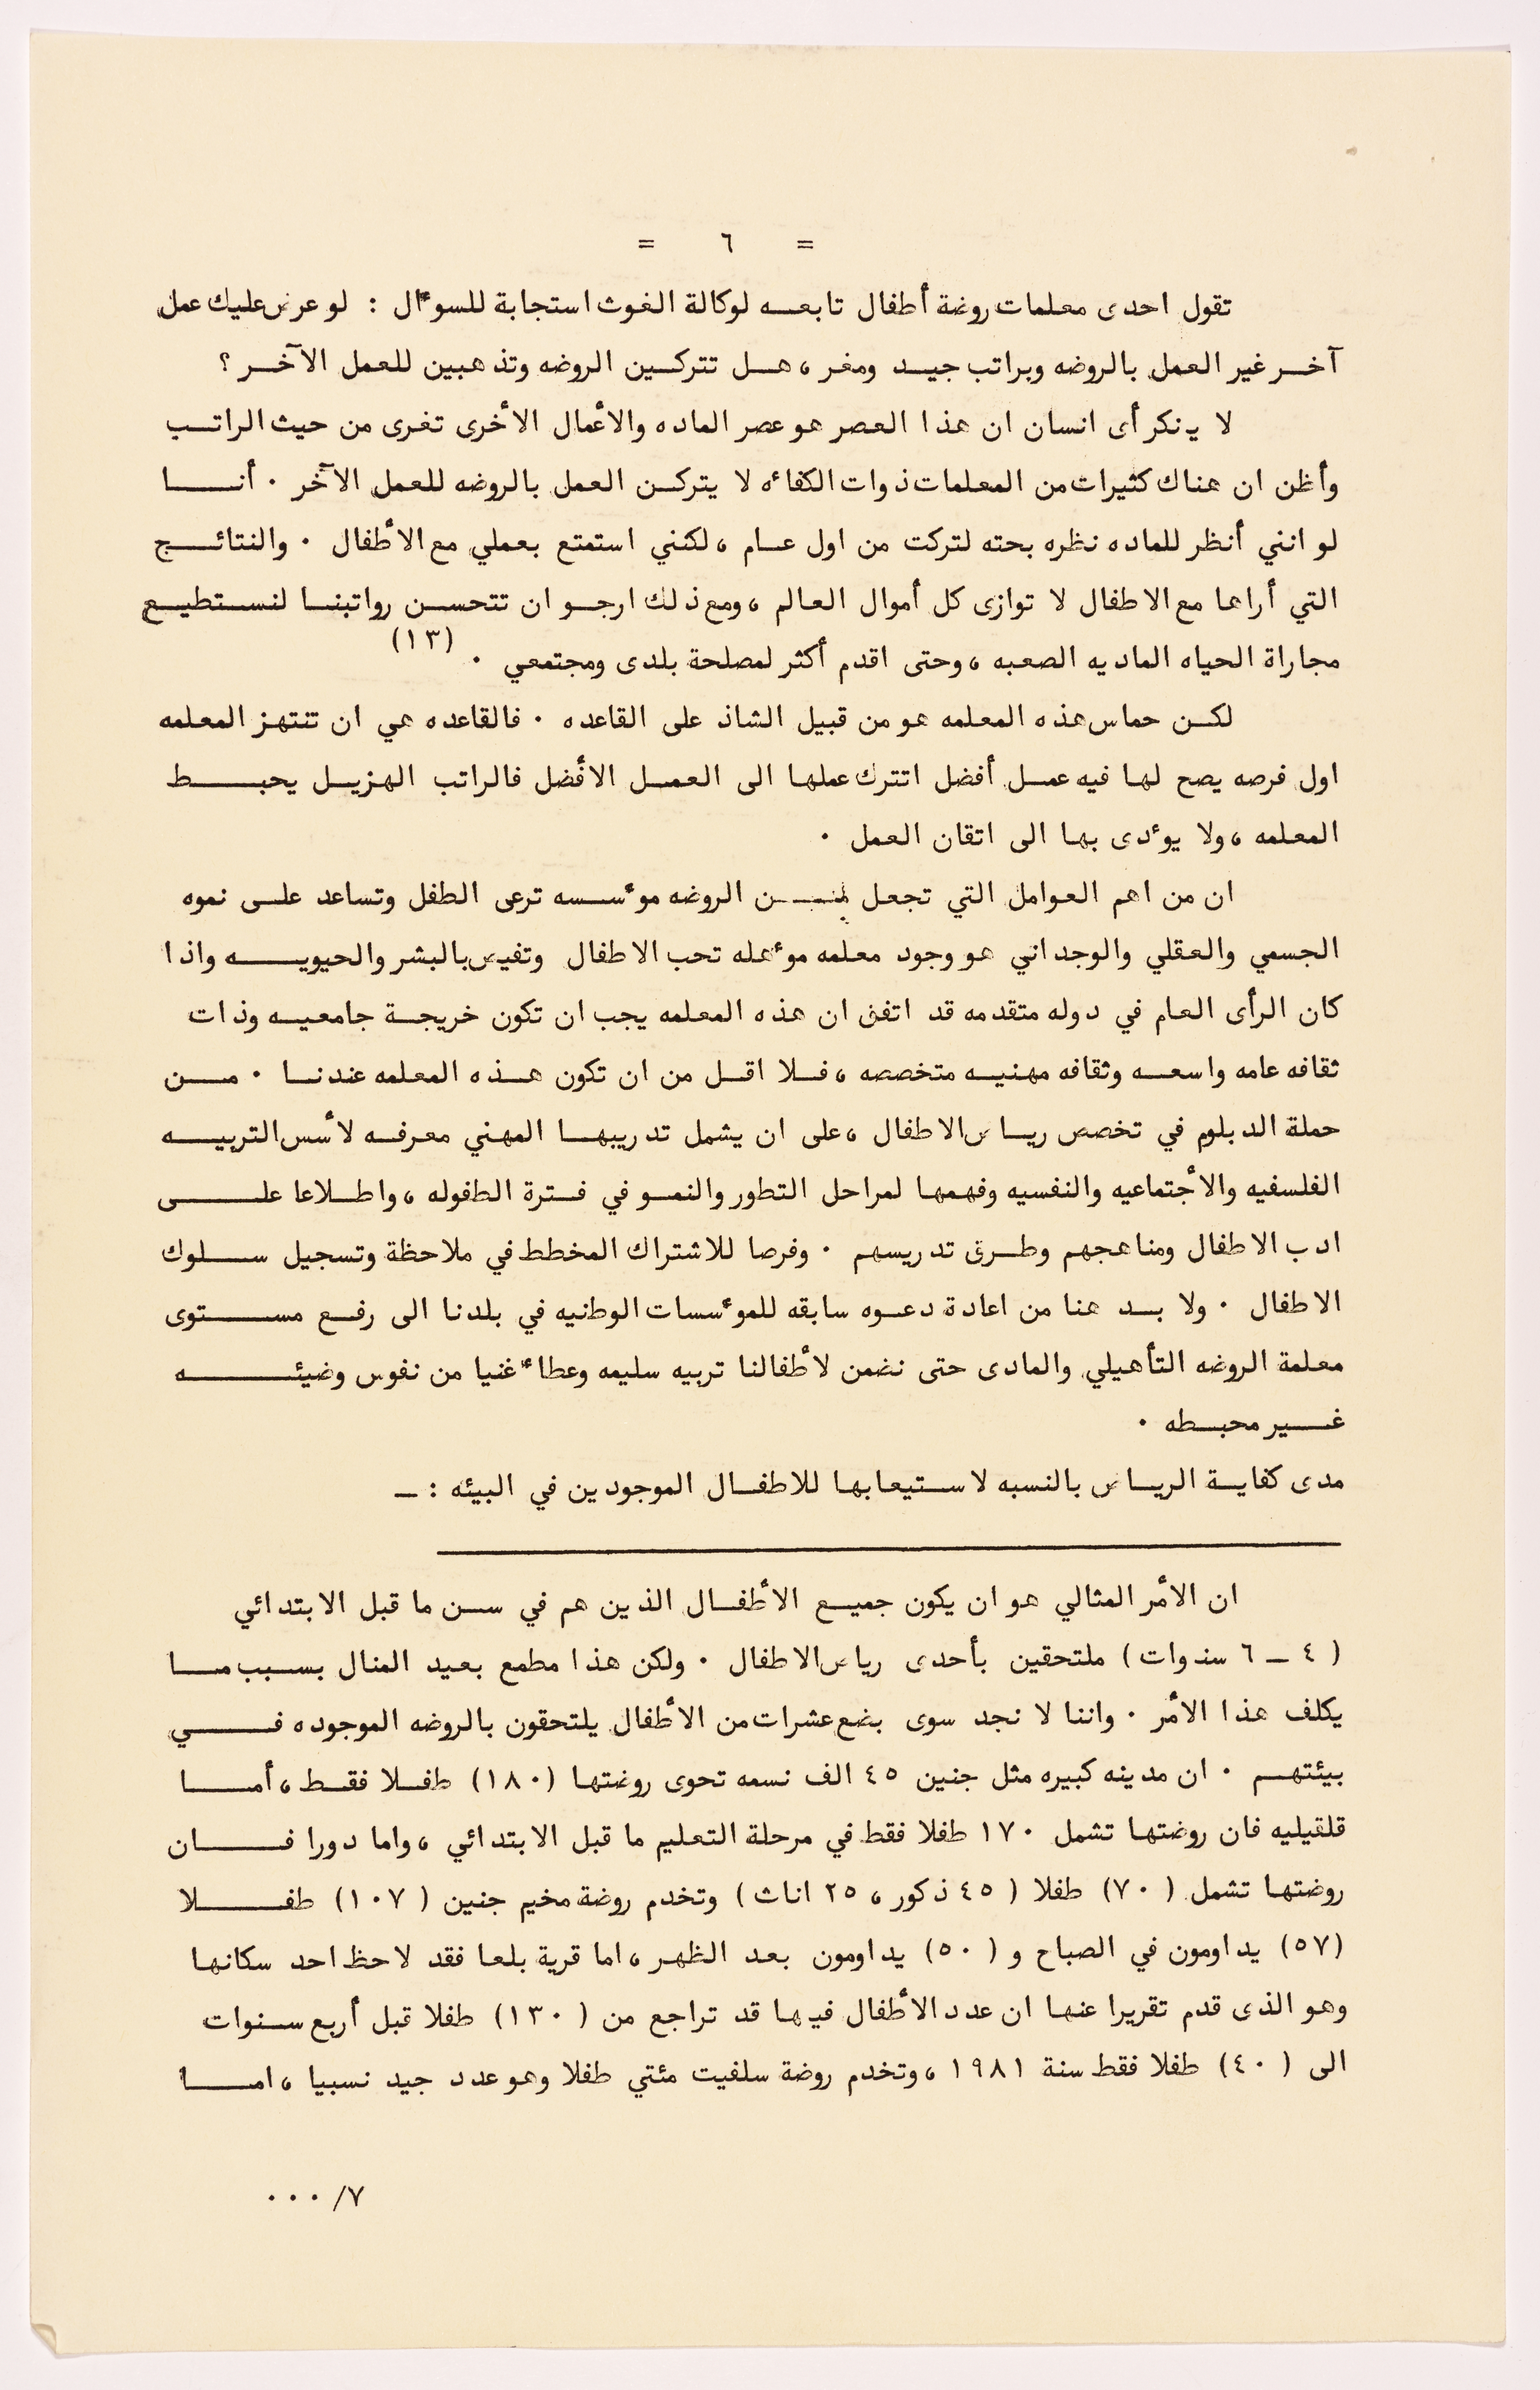 = ٦ =
تقول احدى معلمات روضة أطفال تابعه لوكالة الغوث استجابة للسوءال : لو عرض عليك عمل
آخر غير العمل بالروضه وبراتب جيد ومغر ، هل تتركين الروضه وتذهبين للعمل الآخر ؟
لا ينكر أى انسان ان هذا العصر هو عصر الماده والأعمال الأخرى تغرى من حيث الراتب
وأظن ان هناك كثيرات من المعلمات ذوات الكفاءه لا يتركن العمل بالروضه للعمل الآخر ٠ أنا
لو انني أنظر للماده نظره بحته لتركت من اول عام ، لكنني استمتع بعملي مع الأطفال ٠ والنتائج
التي أراها مع الاطفال لا توازى كل أموال العالم ، ومع ذلك ارجو ان تتحسن رواتبنا لنستطيع
مجاراة الحياه الماديه الصعبه ، وحتى اقدم أكثر لمصلحة بلدى ومجتمعي ٠ (١٣)
لكن حماس هذه المعلمه هو من قبيل الشاذ على القاعده ٠ فالقاعده هي ان تنتهز المعلمه
اول فرصه يصح لها فيه عمل أفضل اتترك عملها الى العمل الافضل فالراتب الهزيل يحبط
المعلمه ، ولا يوءدى بها الى اتقان العمل ٠
ان من اهم العوامل التي تجعل من الروضه موءسسه ترعى الطفل وتساعد على نموه
الجسمي والعقلي والوجداني هو وجود معلمه موءهله تحب الاطفال وتفيض بالبشر والحيويه واذا
كان الرأى العام في دوله متقدمه قد اتفق ان هذه المعلمه يجب ان تكون خريجة جامعيه وذات
ثقافه عامه واسعه وثقافه مهنيه متخصصه ، فلا اقل من ان تكون هذه المعلمه عندنا ٠ من
حملة الدبلوم في تخصص رياض الاطفال ، على ان يشمل تدريبها المهني معرفه لأسس التربيه
الفلسفيه والأجتماعيه والنفسيه وفهمها لمراحل التطور والنمو في فترة الطفوله ، واطلاعا على
ادب الاطفال ومناهجهم وطرق تدريسهم ٠ وفرصا للاشتراك المخطط في ملاحظة وتسجيل سلوك
الاطفال ٠ ولا بد هنا من اعادة دعوه سابقه للموءسسات الوطنيه في بلدنا الى رفع مستوى
معلمة الروضه التأهيلي والمادى حتى نضمن لأطفالنا تربيه سليمه وعطاء غنيا من نفوس وضيئه
غير محبطه ٠
مدى كفاية الرياض بالنسبه لاستيعابها للاطفال الموجودين في البيئه : ــ
ان الأمر المثالي هو ان يكون جميع الأطفال الذين هم في سن ما قبل الابتدائي
( ٤ ــ ٦ سنوات ) ملتحقين بأحدى رياض الاطفال ٠ ولكن هذا مطمع بعيد المنال بسبب ما
يكلف هذا الأمر ٠ واننا لا نجد سوى بضع عشرات من الأطفال يلتحقون بالروضه الموجوده في
بيئتهم ٠ ان مدينه كبيره مثل جنين ٤٥ الف نسمه تحوى روضتها (١٨٠) طفلا فقط ، أما
قلقيليه فان روضتها تشمل ١٧٠ طفلا فقط في مرحلة التعليم ما قبل الابتدائي ، واما دورا فان
روضتها تشمل (٧٠) طفلا ( ٤٥ ذكور ، ٢٥ اناث ) وتخدم روضة مخيم جنين (١٠٧) طفلا
(٥٧) يداومون في الصباح و (٥٠) يداومون بعد الظهر ، اما قرية بلعا فقد لاحظ احد سكانها
وهو الذى قدم تقريرا عنها ان عدد الأطفال فيها قد تراجع من (١٣٠) طفلا قبل أربع سنوات
الى (٤٠) طفلا فقط سنة ١٩٨١ ، وتخدم روضة سلفيت مئتي طفلا وهو عدد جيد نسبيا ، اما
٧/ ٠٠٠